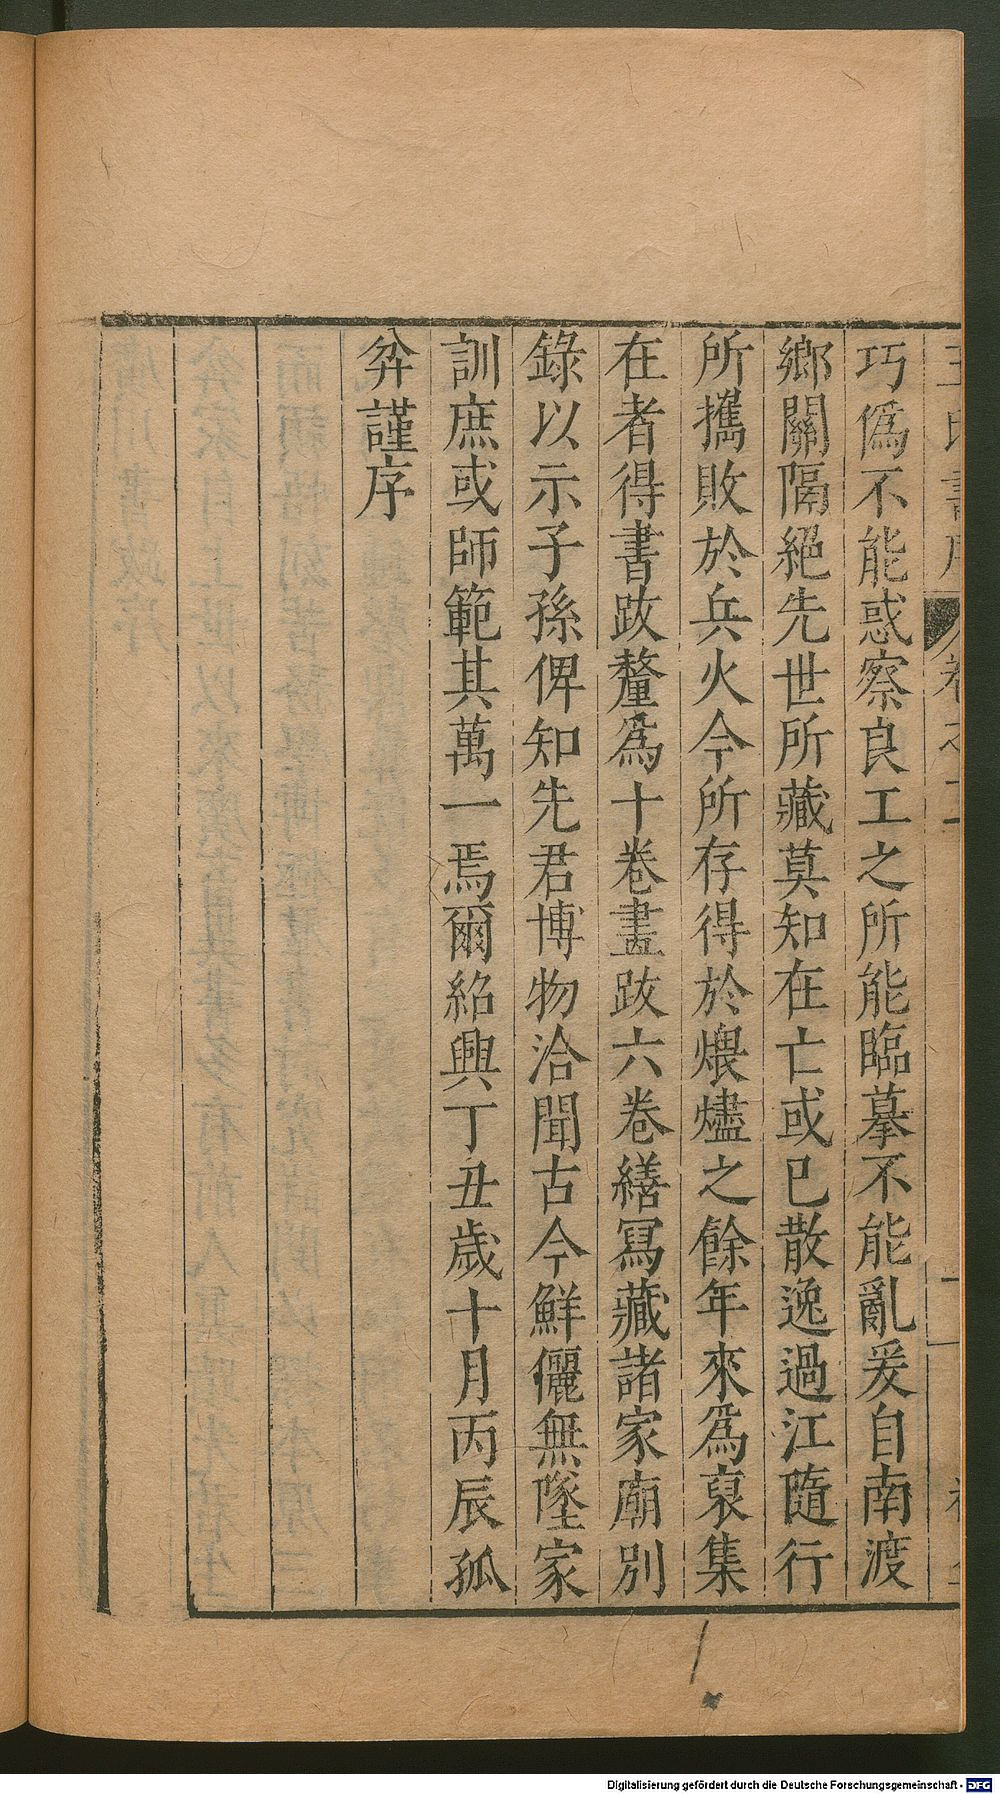 巧僞不能惑察良工之所能臨摹不能亂爰自南渡
鄉關隔絕先世所藏莫知在亡或已散逸過江隨行
所攜敗於兵火今所存得於煨燼之餘年來爲裒集
在者得書跋釐爲十卷畫跋六卷繕寫藏諸家廟別
錄以示子孫俾知先君博物洽聞古今鮮儷無墜家
訓庶或師範其萬一焉爾紹興丁丑歲十月丙辰孤
弅謹序
Digitalisierung gefördert durch die Deutsche Forschungsgemeinschaft - DFG